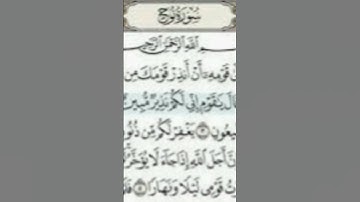 سُورَةُ نُوحٍ
بِسْمِ اللَّهِ الرَّحْمَٰنِ الرَّحِيمِ
قَوْمِهِ أَنْ أَنذِرْ قَوْمَكَ مِن
قَالَ يَٰقَوْمِ إِنِّي لَكُمْ نَذِيرٌ مُّبِينٌ
يَغْفِرْ لَكُم مِّن
أَجَلَ اللَّهِ إِذَا جَاءَ لَا يُؤَخَّرُ
قَوْمِي لَيْلًا وَنَهَارًا